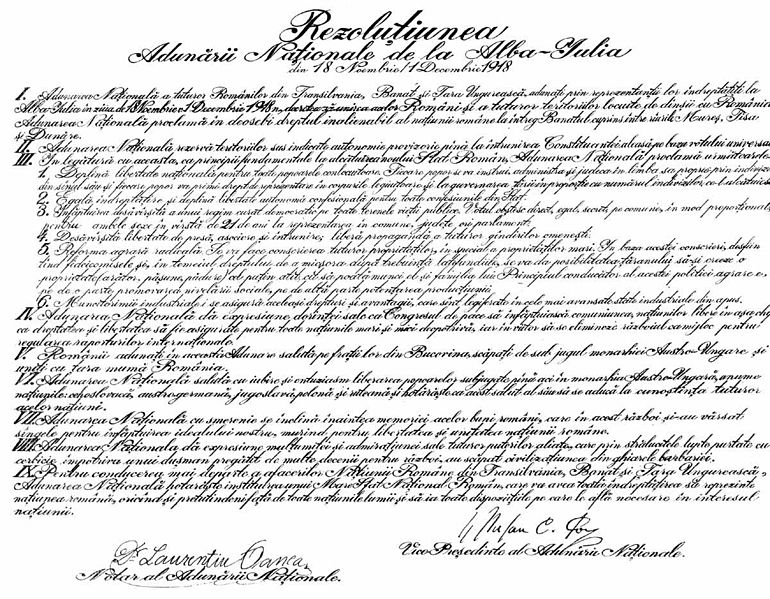 Rezoluțiunea
Adunării Naționale de la Alba-Iulia
din 18 Noembrie/1 Decembrie 1918
I. Adunarea Națională a tuturor Românilor din Transilvania, Banat și Țara Ungurească, adunați prin reprezentanții lor îndreptățiți la
Alba-Iulia în ziua de 18 Noembrie/1 Decembrie 1918, decretează unirea acelor Români și a tuturor teritoriilor locuite de dînșii cu România.
Adunarea Națională proclamă îndeosebi dreptul inalienabil al națiunii române la întreg Banatul cuprins între rîurile Mureș, Tisa
și Dunăre.
II. Adunarea Națională rezervă teritoriilor sus indicate autonomie provizorie pînă la întrunirea Constituantei aleasă pe baza votului universal.
III. În legătură cu aceasta, ca principii fundamentale la alcătuirea noului Stat Român, Adunarea Națională proclamă următoarele:
1. Deplină libertate națională pentru toate popoarele conlocuitoare. Fiecare popor se va instrui, administra și judeca în limba sa proprie prin indivizi
din sînul său și fiecare popor va primi drept de reprezentare în corpurile legiuitoare și la guvernarea țării în proporție cu numărul indivizilor ce-l alcătuiesc.
2. Egală îndreptățire și deplină libertate autonomă confesională pentru toate confesiunile din Stat.
3. Înfăptuirea desăvîrșită a unui regim curat democratic pe toate terenele vieții publice. Votul obștesc, direct, egal, secret, pe comune, în mod proporțional,
pentru ambele sexe, în vîrstă de 21 de ani la reprezentarea în comune, județe ori parlament.
4. Desăvîrșită libertate de presă, asociere și întrunire; liberă propagandă a tuturor gîndurilor omenești.
5. Reforma agrară radicală. Se va face conscrierea tuturor proprietăților, în special a proprietăților mari. În baza acestei conscrieri, desființ
înd fideicomisele și, în temeiul dreptului de a micșora după trebuință latifundiile, se va da posibilitatea țăranului să-și creeze o
proprietate (arător, pășune, pădure) cel puțin atît cît să poată munci el și familia lui. Principiul conducător al acestei politici agrare e,
pe de o parte promovarea nivelării sociale, pe de altă parte potențarea producțiunii.
6. Muncitorimii industriale i se asigură aceleași drepturi și avantagii, care sînt legiferate în cele mai avansate state industriale din apus.
IV. Adunarea Națională dă expresiune dorinței sale ca Congresul de pace să înfăptuiască comuniunea națiunilor libere în așa chip,
ca dreptatea și libertatea să fie asigurate pentru toate națiunile mari și mici deopotrivă, iar în viitor să se elimineze războiul ca mijloc pentru
regularea raporturilor internaționale.
V. Românii adunați în această Adunare salută pe frații lor din Bucovina, scăpați de sub jugul monarhiei Austro-Ungare și
uniți cu țara mumă România.
VI. Adunarea Națională salută cu iubire și entuziasm liberarea popoarelor subjugate pînă aci în monarhia Austro-Ungară, anume
națiunile: cehoslovacă, austrogermană, jugoslavă, polonă și ruteană și hotărăște ca acest salut al său să se aducă la cunoștința tuturor
acelor națiuni.
VII. Adunarea Națională cu smerenie se închină înaintea memoriei acelor bravi români, care în acest război și-au vărsat
sîngele pentru înfăptuirea idealului nostru, murind pentru libertatea și unitatea națiunii române.
VIII. Adunarea Națională dă expresiune mulțumitei și admirațiunei sale tuturor puterilor aliate, care prin strălucitele lupte purtate cu
cerbicie împotriva unui dușman pregătit de multe decenii pentru război, au scăpat civilizațiunea din ghiarele barbariei.
IX. Pentru conducerea mai departe a afacerilor Națiunii Române din Transilvania, Banat și Țara Ungurească,
Adunarea Națională hotărăște instituirea unui Mare Sfat Național Român, care va avea toată îndreptățirea să reprezinte
națiunea română, oricînd și pretutindeni față de toate națiunile lumii și să ia toate dispozițiile pe care le află necesare în interesul
națiunii.
Dr. Laurențiu Oanea
Notar al Adunării Naționale.
Ștefan C. Pop
Vice-Președinte al Adunării Naționale.